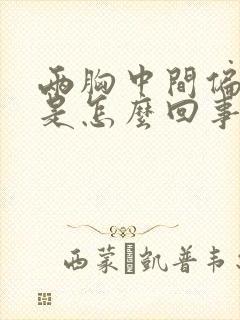 兩胸中間偏
是怎麼回事
西蒙 凱普韦